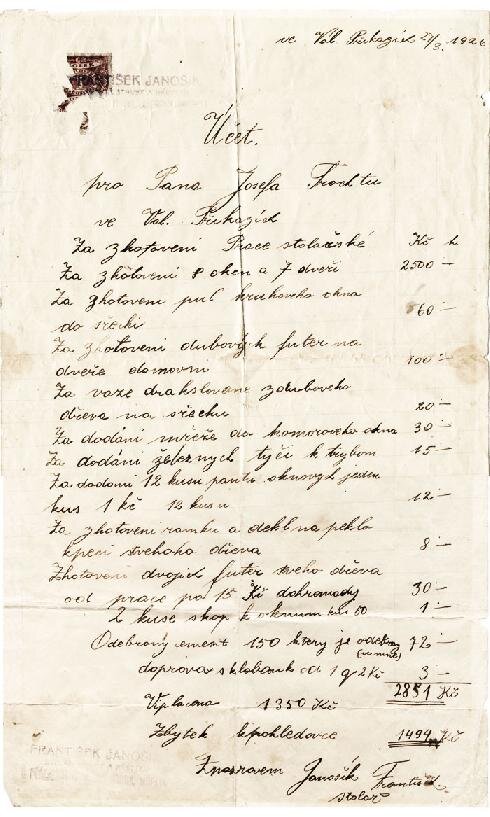 ve Val. Příkazích 24/3. 1926
FRANTIŠEK JANOŠÍK
Účet.
pro Pana Josefa Trochtu
ve Val. Příkazích
Za zhotovení Prace stolařské Kč h
Za zhotovení 8 oken a 7 dveři 2500 –
Za zhotoveni pul kruhoveho okna
do střechi 60 –
Za zhotoveni dubových futer na
dveře domovni 100 –
Za vaze drakslovane z duboveho
dřeva na střechu 20 –
Za dodání mřeže do komoroveho okna 30 –
Za dodáni železnych tyči k trybom 15 –
Za dodani 12 kusu pantu oknovych jeden
kus 1 kč 12 kusu 12 –
Za zhotoveni ramku a dekl na peklo
kpeci sveho dřeva 8 –
Zhotoveni dvojich futer sveho dřeva
od prace po 15 Kč dohromady 30 –
2 kuse skop k oknum kus 50 1 –
Odebrony cement 150 ktery je 72 –
doprava s klobouk od 1 q 2 Kč 3 –
2851 Kč
Vyplacena 1350 Kč
Zbytek kpohledavce 1494 Kč
Janošík František
stolař
FRANTIŠEK JANOŠ